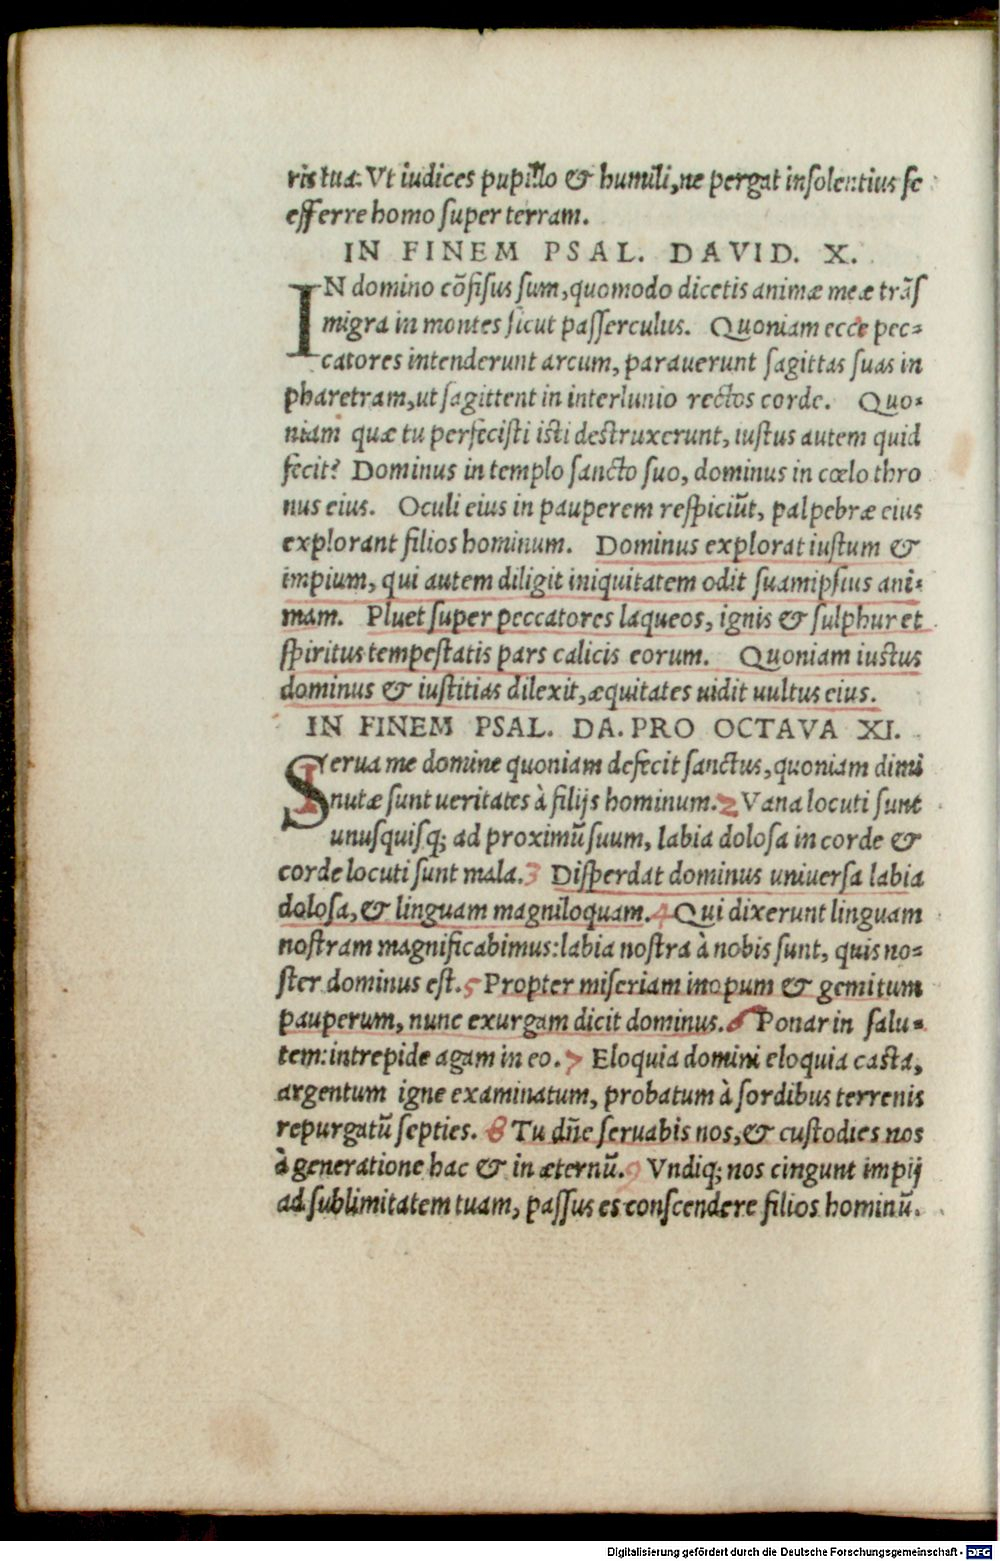 ris tua. Vt iudices pupillo & humili, ne pergat insolentius se
efferre homo super terram.
IN FINEM PSAL. DAVID. X.
IN domino cõfisus sum, quomodo dicetis animæ meæ trãs
migra in montes sicut passerculus. Quoniam ecce pec-
catores intenderunt arcum, parauerunt sagittas suas in
pharetram, ut sagittent in interlunio rectos corde. Quo-
niam quæ tu perfecisti isti destruxerunt, iustus autem quid
fecit? Dominus in templo sancto suo, dominus in cœlo thro
nus eius. Oculi eius in pauperem respiciũt, palpebræ eius
explorant filios hominum. Dominus explorat iustum &
impium, qui autem diligit iniquitatem odit suamipsius ani-
mam. Pluet super peccatores laqueos, ignis & sulphur et
spiritus tempestatis pars calicis eorum. Quoniam iustus
dominus & iustitias dilexit, æquitates uidit uultus eius.
IN FINEM PSAL. DA. PRO OCTAVA XI.
1 Serua me domine quoniam defecit sanctus, quoniam dimi
nutæ sunt ueritates à filijs hominum. 2 Vana locuti sunt
unusquisq; ad proximũ suum, labia dolosa in corde &
corde locuti sunt mala. 3 Disperdat dominus uniuersa labia
dolosa, & linguam magniloquam. 4 Qui dixerunt linguam
nostram magnificabimus: labia nostra à nobis sunt, quis no-
ster dominus est. 5 Propter miseriam inopum & gemitum
pauperum, nunc exurgam dicit dominus. 6 Ponar in salu-
tem: intrepide agam in eo. 7 Eloquia domini eloquia casta,
argentum igne examinatum, probatum à sordibus terrenis
repurgatũ septies. 8 Tu dñe seruabis nos, & custodies nos
à generatione hac & in æternũ. 9 Vndiq; nos cingunt impij
ad sublimitatem tuam, passus es conscendere filios hominũ.
Digitalisierung gefördert durch die Deutsche Forschungsgemeinschaft - DFG